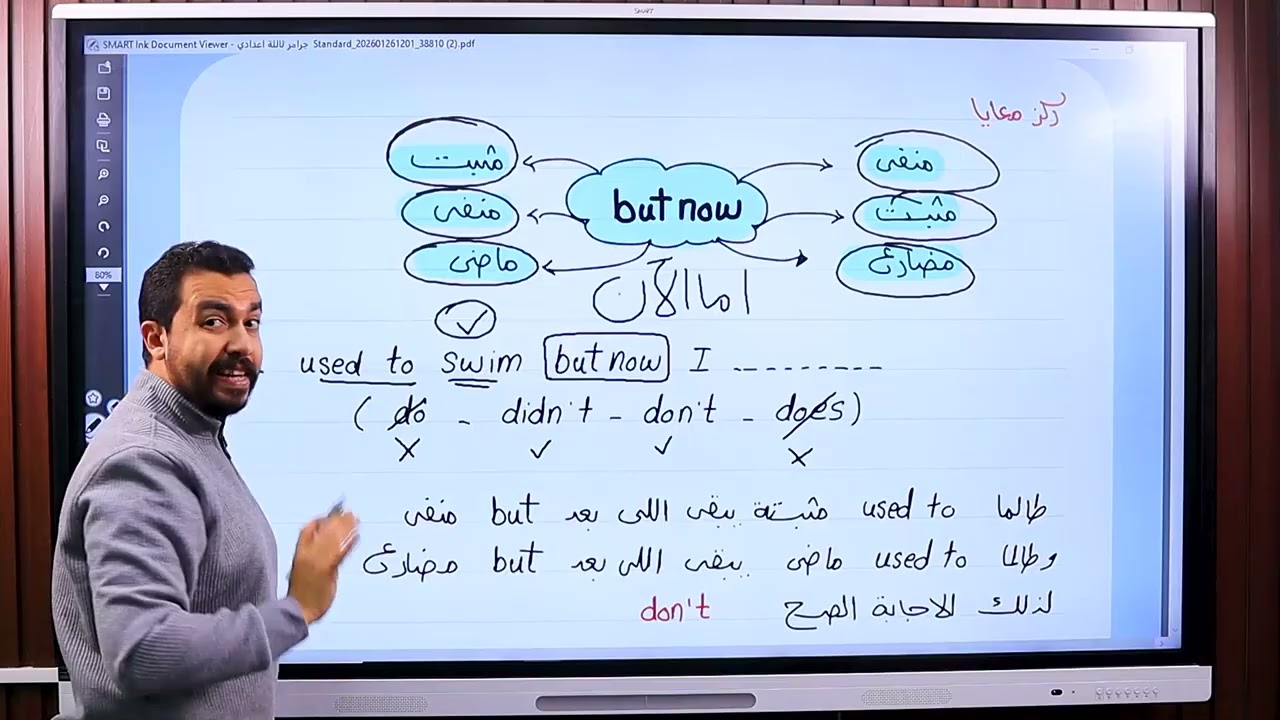 SMART
SMART Ink Document Viewer - جرامر تالتة اعدادي Standard_202601261201_38810 (2).pdf
ركز معايا
مثبت but now منفى
منفى مثبت
ماضى مضارع
اما الآن
80%
used to swim but now I --------
( do - didn't - don't - does )
طالما used to مثبتة يبقى اللى بعد but منفى
وطالما used to ماضى يبقى اللى بعد but مضارع
لذلك الاجابة الصح don't